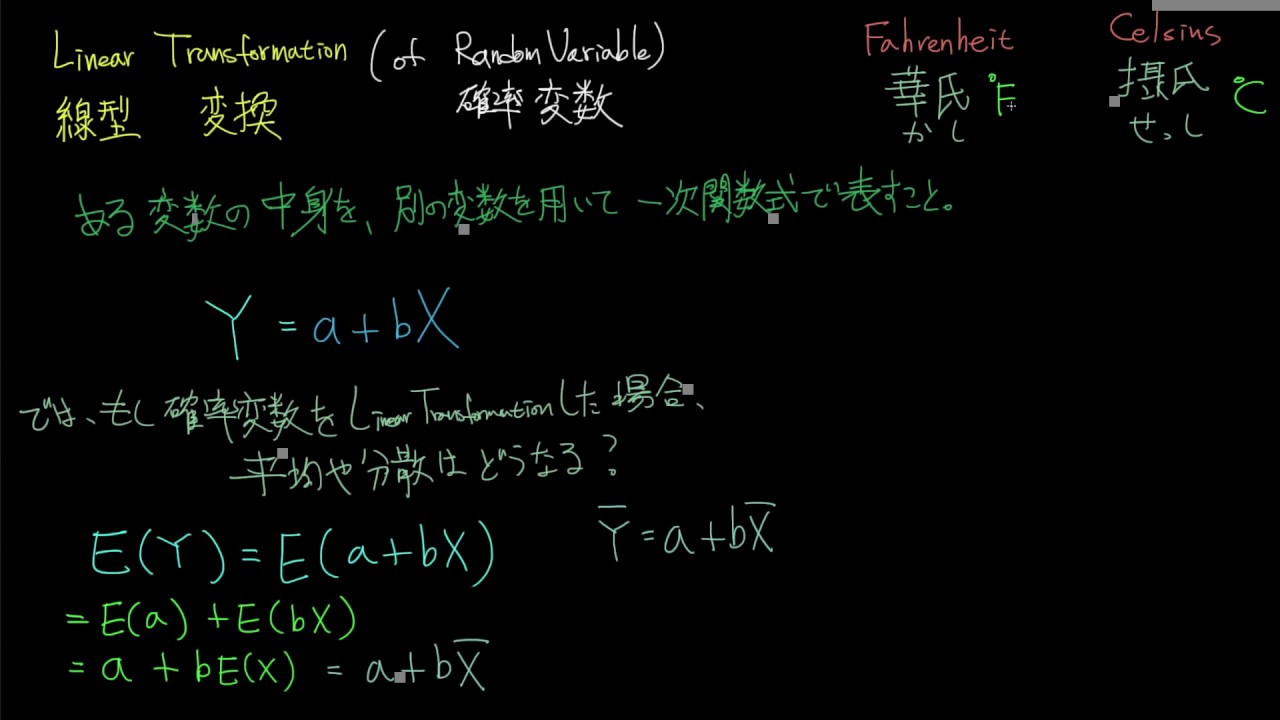 Linear Transformation (of Random Variable)
線型 変換 確率変数
Fahrenheit
華氏 °F
かし
Celsius
摂氏 °C
せっし
ある変数の中身を、別の変数を用いて一次関数式で表すこと。
Y = a + bX
では、もし確率変数をLinear Transformationした場合、
平均や分散はどうなる?
E(Y) = E(a+bX)
= E(a) + E(bX)
= a + bE(X) = a + bX̅
Y̅ = a + bX̅